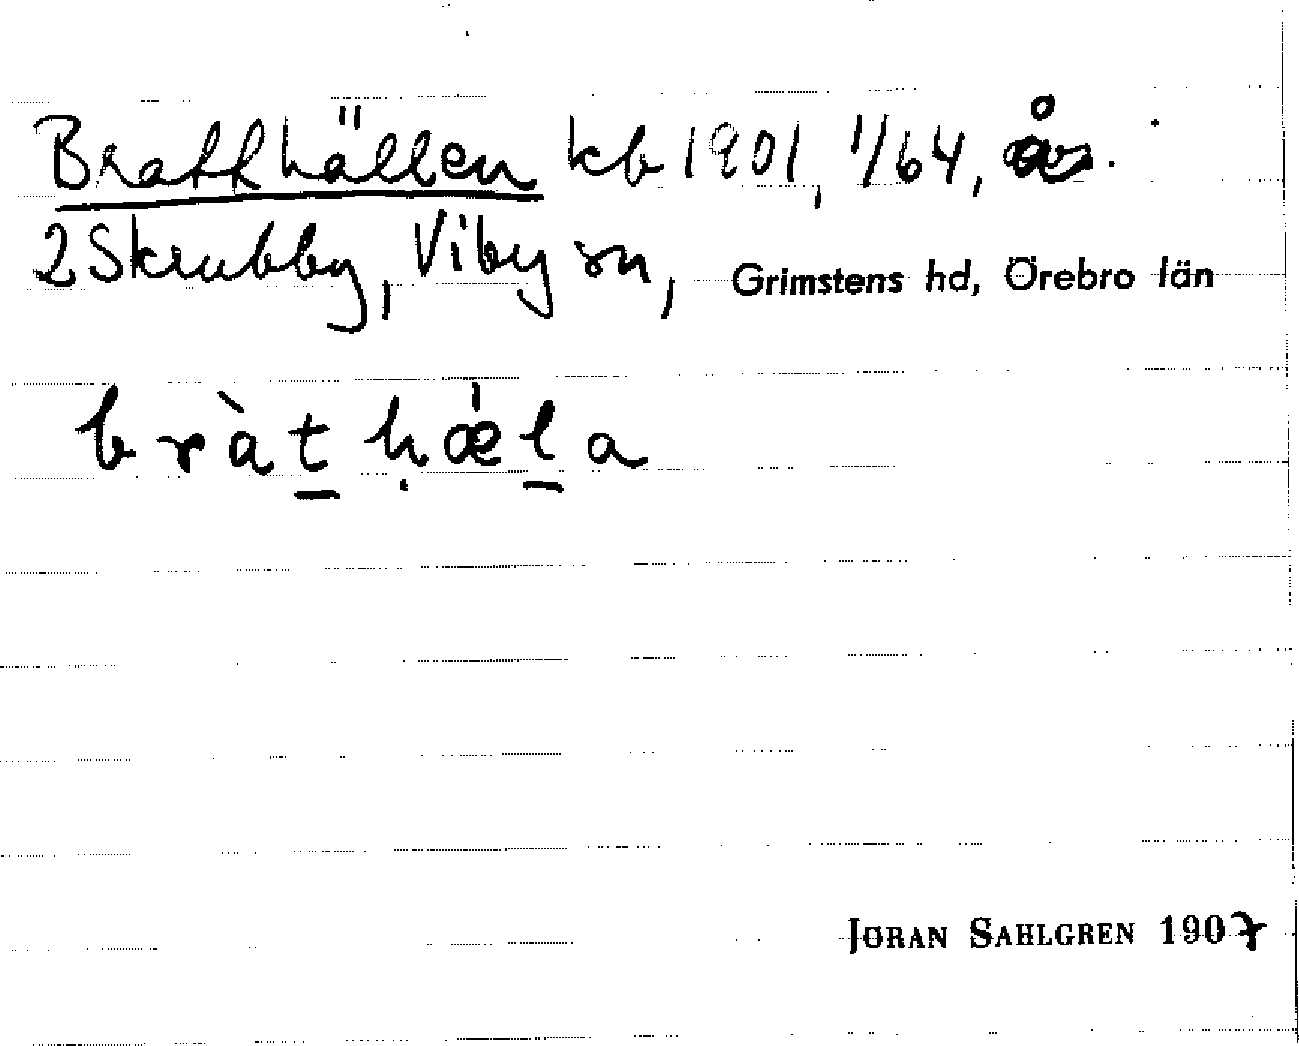 Bratthällen kb 1901, 1/64, ås.
2 Skrubby, Viby sn, Grimstens hd, Örebro län
bràt̲ḥǽl̲a
JÖRAN SAHLGREN 1907